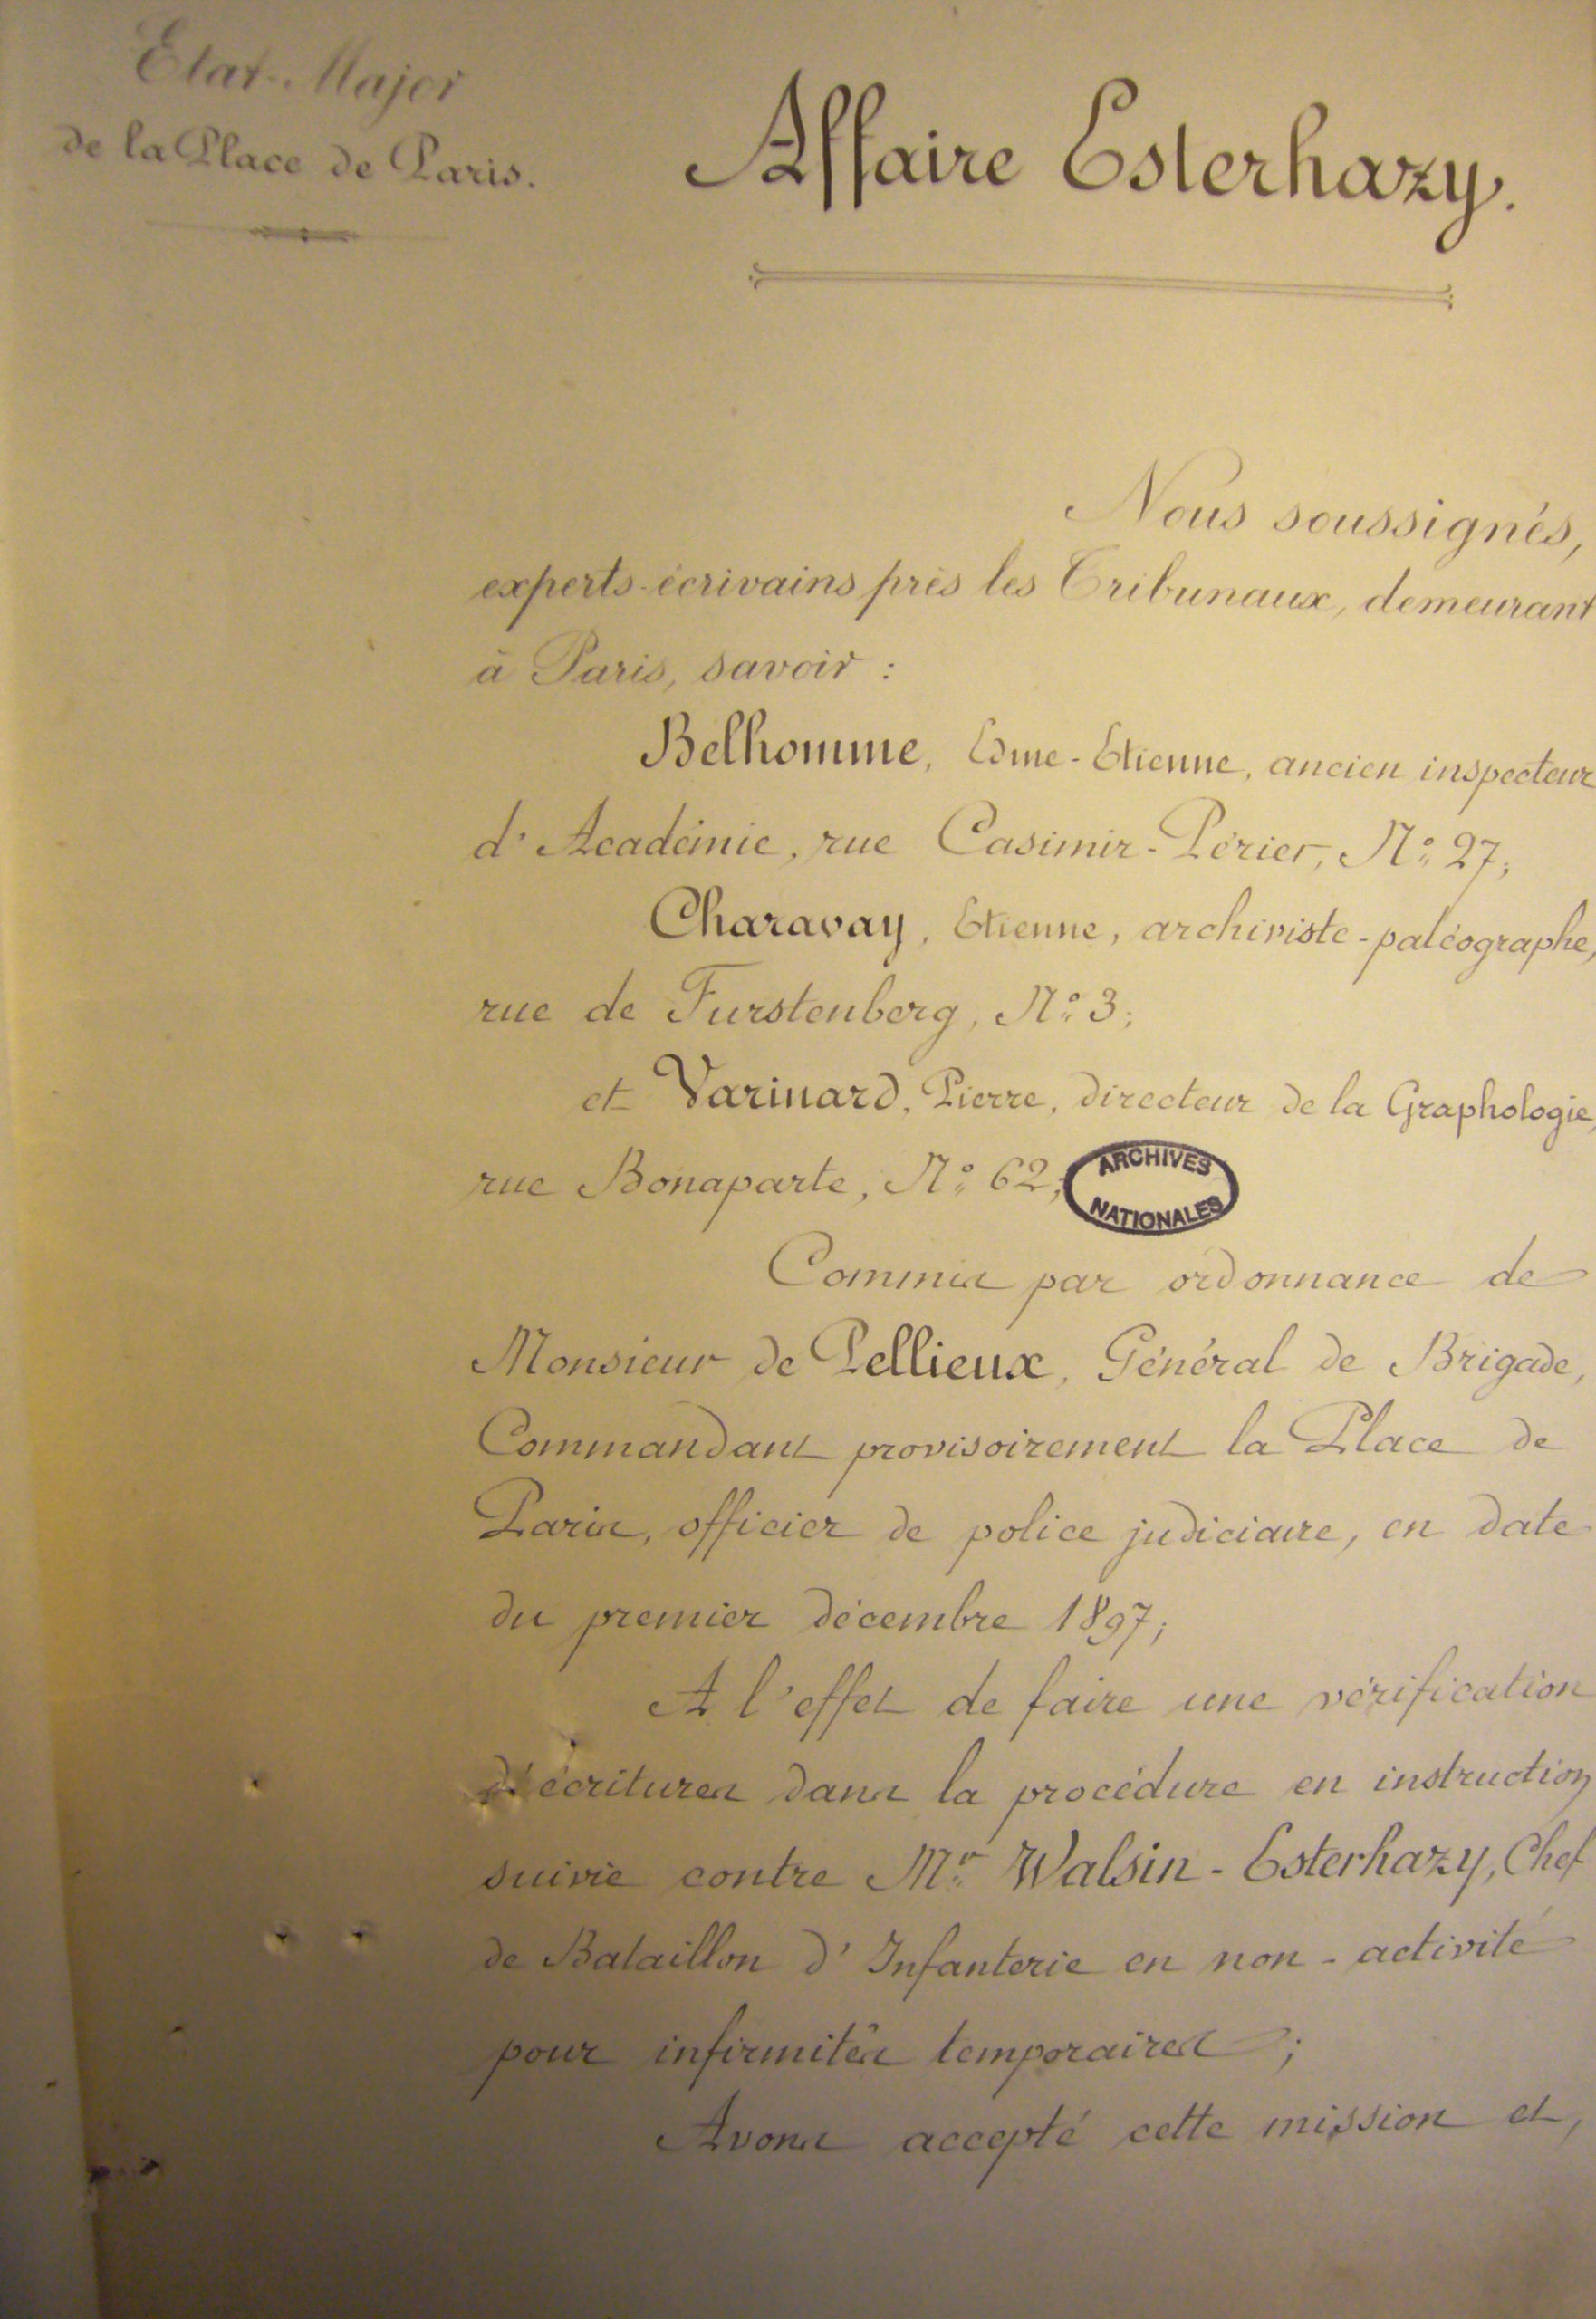 Etat-Major
de la Place de Paris.
Affaire Esterhazy.
Nous soussignés,
experts-écrivains près les Tribunaux, demeurant
à Paris, savoir :
Belhomme, Edme-Etienne, ancien inspecteur
d'Académie, rue Casimir-Périer, No 27;
Charavay, Etienne, archiviste-paléographe,
rue de Furstenberg, No 3;
et Varinard, Pierre, directeur de la Graphologie,
rue Bonaparte, No 62;
ARCHIVES
NATIONALES
Commis par ordonnance de
Monsieur de Pellieux, Général de Brigade,
Commandant provisoirement la Place de
Paris, officier de police judiciaire, en date
du premier décembre 1897;
A l'effet de faire une vérification
d'écritures dans la procédure en instruction
suivie contre Mr Walsin-Esterhazy, Chef
de Bataillon d'Infanterie en non-activité
pour infirmités temporaires ;
Avons accepté cette mission et,